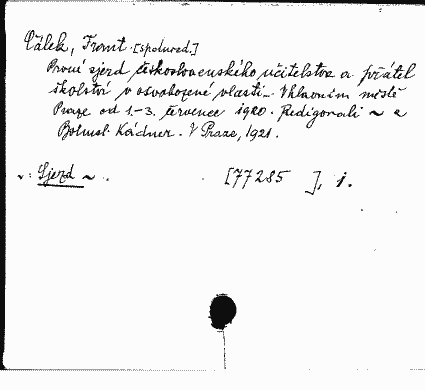 Čálek, Front. [spolured.]
První sjezd československého učitelstva a přátel
školství v osvobozené vlasti.. V hlavním městě
Praze od 1.-3. července 1920. Redigovali ~ a
Bohusl. Kádner. V Praze, 1921.
v. Sjezd ~. [77285 ], j.